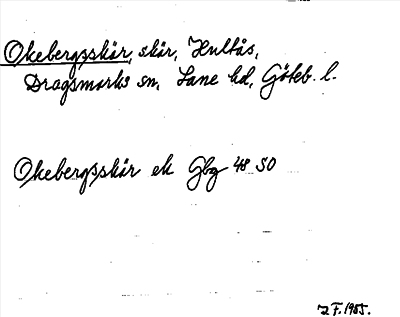 Okebergsskär, skär, Hultås,
Dragsmarks sn, Lane hd, Göteb. l.
Okebergsskär ek Gbg 48 SO
J.F. 1985.